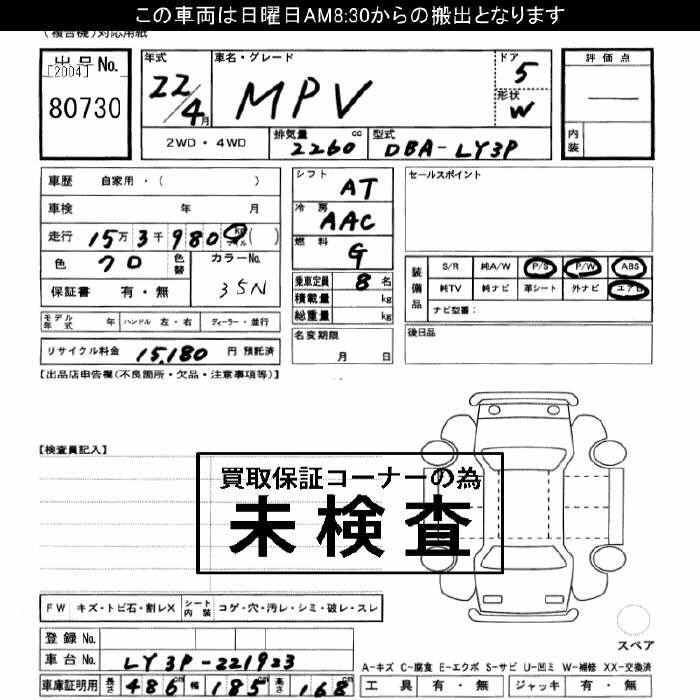 この車両は日曜日AM8:30からの搬出となります
(複合機)対応用紙
出品No.
[2004]
80730
年式
22/4月
車名・グレード
MPV
ドア
5
形状
W
評価点
—
内装
2WD・4WD
排気量
2260
cc
型式
DBA-LY3P
車歴 自家用・( )
車検 年 月
走行 15万3千980
km
マイル
( )
色 クロ
色替
カラーNo.
35N
保証書 有・無
シフト
AT
冷房
AAC
燃料
G
乗車定員 8名
積載量 kg
総重量 kg
名変期限
月 日
セールスポイント
装備品
S/R 純A/W P/S P/W ABS
純TV 純ナビ 革シート 外ナビ エアB
ナビ型番:
後日品
モデル年式 年 ハンドル 左・右 ディーラー・並行
リサイクル料金 15,180 円 預託済
【出品店申告欄(不良箇所・欠品・注意事項等)】
【検査員記入】
買取保証コーナーの為
未検査
FW キズ・トビ石・割レX
シート内装
コゲ・穴・汚レ・シミ・破レ・スレ
登録No.
車台No. LY3P-221923
車庫証明用 長さ 486cm 幅 185cm 高さ 168cm
スペア
A-キズ C-腐食 E-エクボ S-サビ U-凹ミ W-補修 XX-交換済
工具 有・無 ジャッキ 有・無